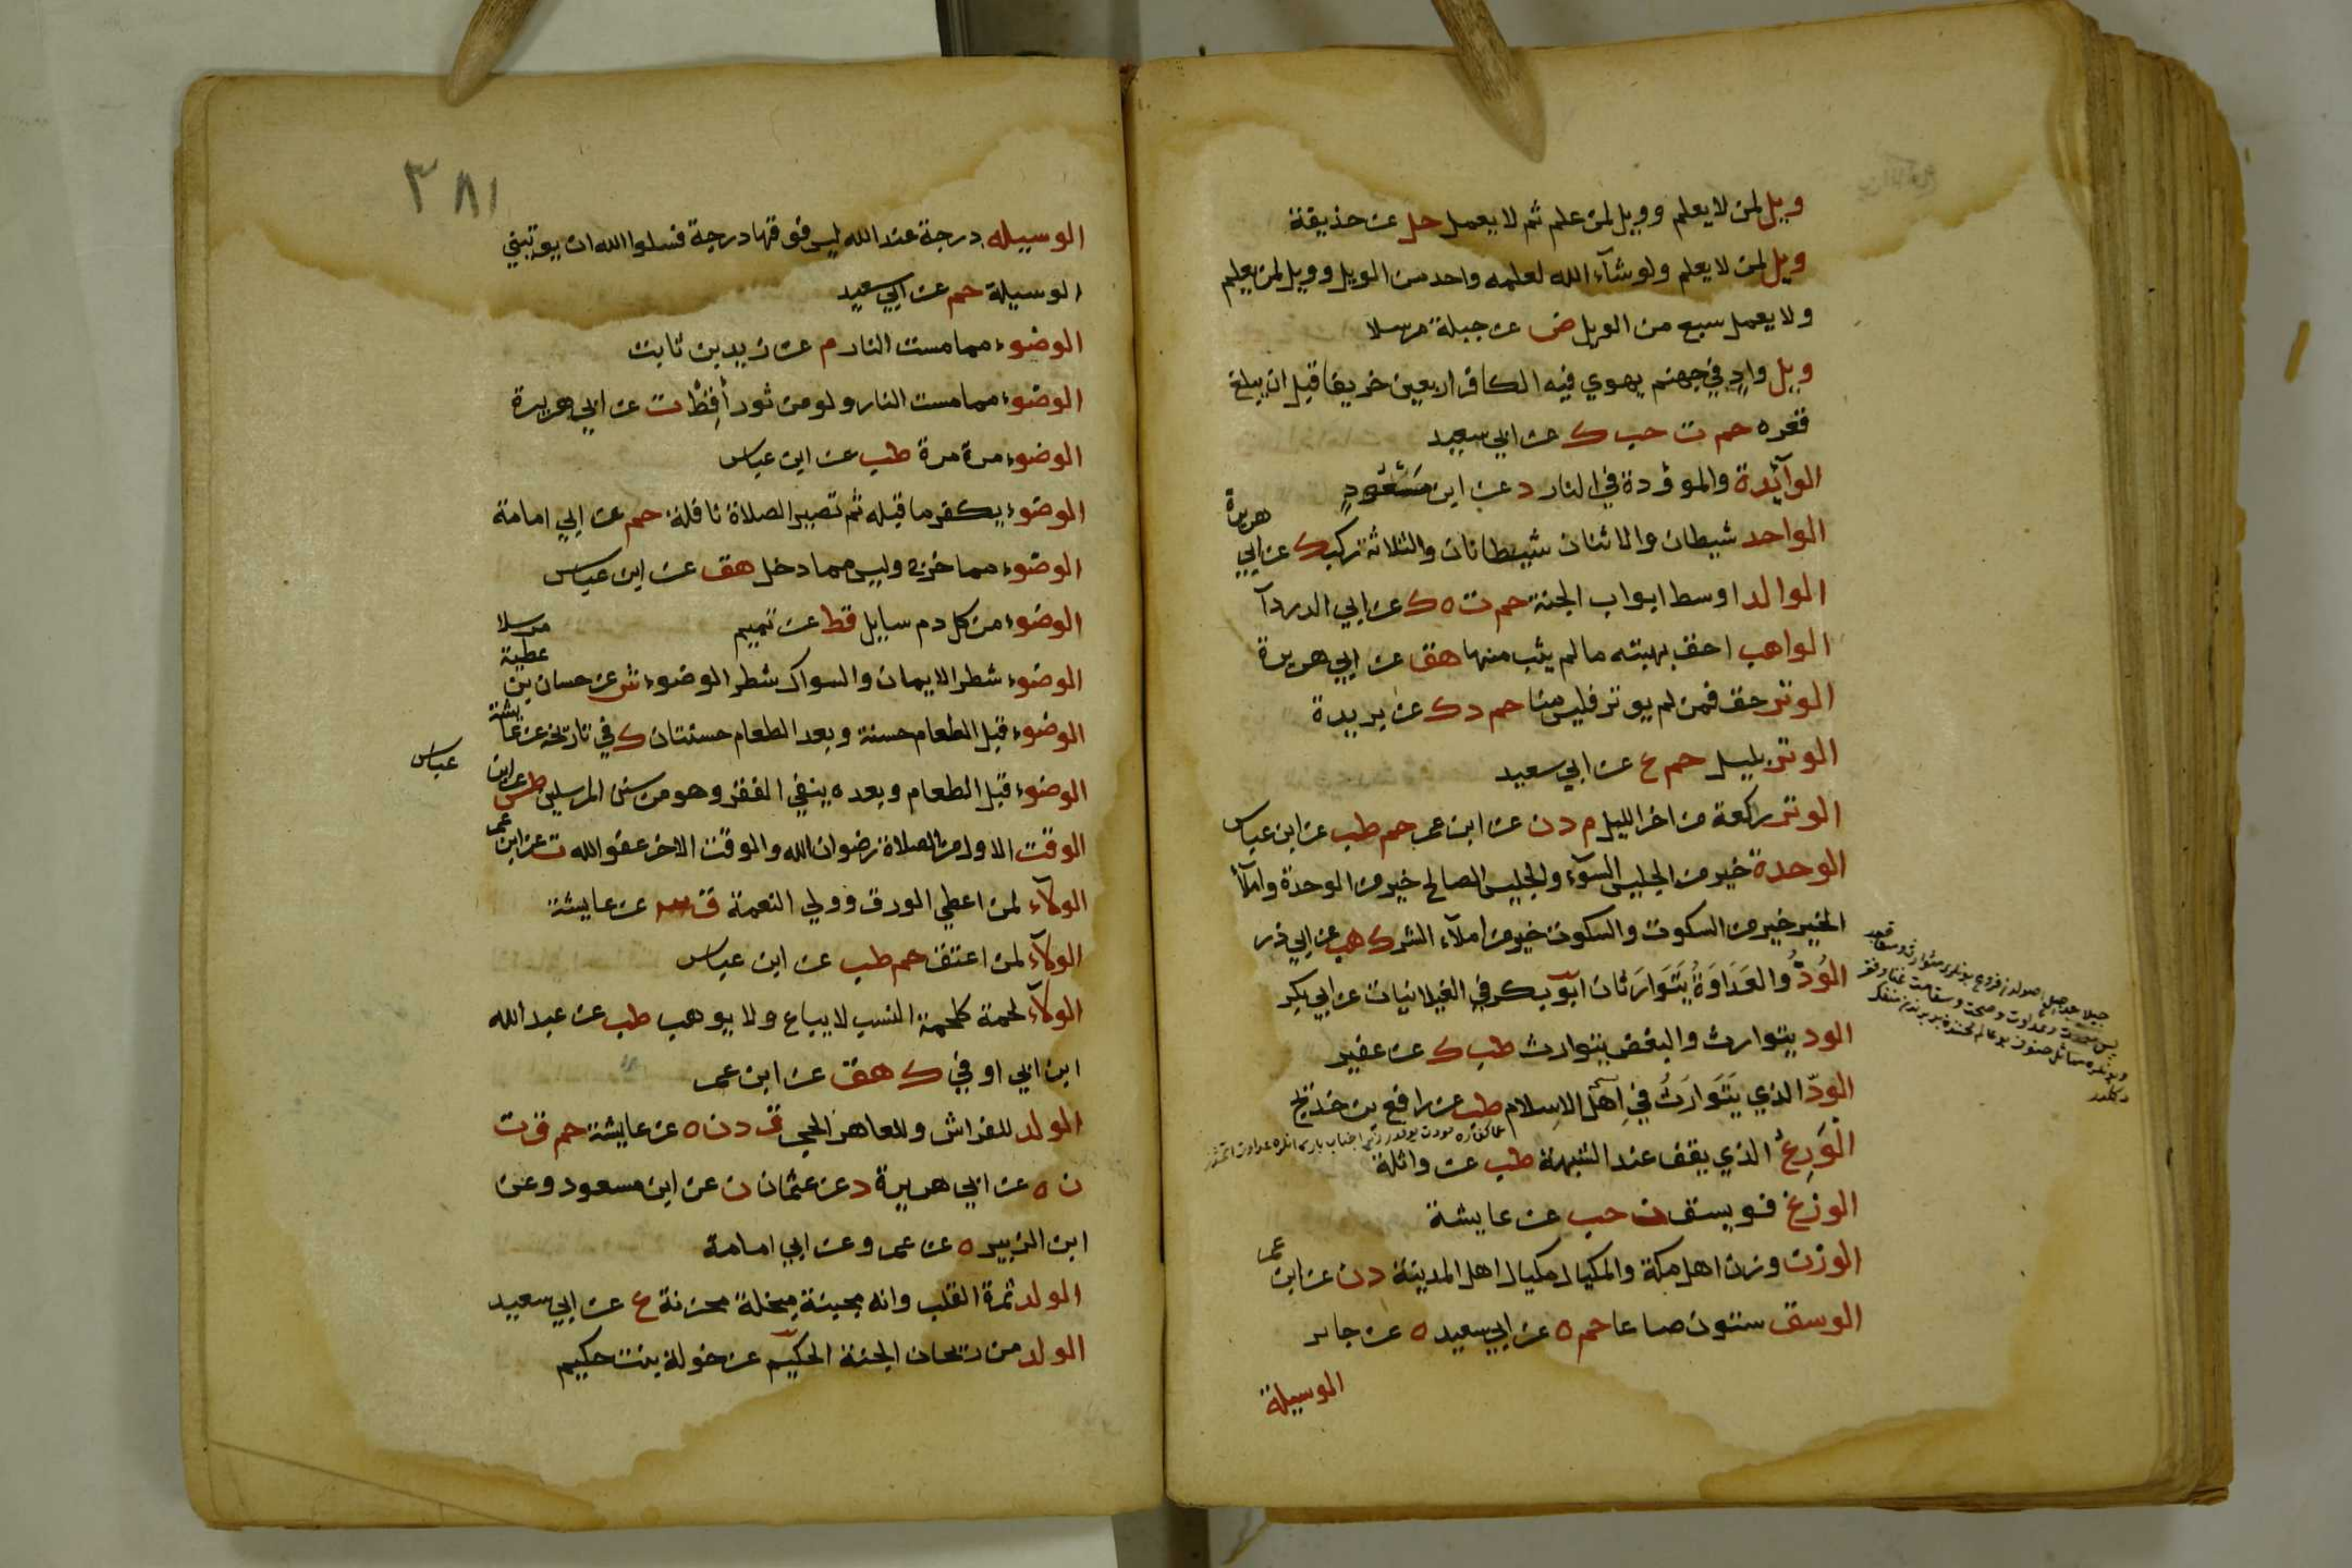 ويل لمن لا يعلم وويل لمن علم ثم لا يعمل حل عن حذيفة
ويل لمن لا يعلم ولو شآء الله لعلمه واحد من الويل وويل لمن يعلم
ولا يعمل سبع من الويل ص عن جبلة مرسلا
ويل واد في جهنم يهوي فيه الكافر اربعين خريفا قبل ان يبلغ
قعره حم ت حب ك عن ابي سعيد
الوآئدة والموؤدة في النار د عن ابن مسعود
الواحد شيطان والاثنان شيطانان والثلاثة ركب ك عن ابي هريرة
الوالد اوسط ابواب الجنة حم ت ه ك عن ابي الدردآ
الواهب احق بهبته ما لم يثب منها هق عن ابي هريرة
الوتر حق فمن لم يوتر فليس منا حم د ك عن بريدة
الوتر بليل حم ع عن ابي سعيد
الوتر ركعة من اخر الليل م د ن عن ابن عمر حم طب عن ابن عباس
الوحدة خير من الجليس السوء والجليس الصالح خير من الوحدة واملآء
الخير خير من السكوت والسكوت خير من املآء الشر ك هب عن ابي ذر
الود والعداوة يتوارثان ابو بكر في الغيلانيات عن ابي بكر
الود يتوارث والبغض يتوارث طب ك عن عفير
الود الذي يتوارث في اهل الاسلام طب عن رافع بن خديج
الورع الذي يقف عند الشبهة طب عن واثلة
الوزغ فويسق ن حب عن عايشة
الوزن وزن اهل مكة والمكيال مكيال اهل المدينة د ن عن ابن عمر
الوسق ستون صاعا حم ه عن ابي سعيد ه عن جابر
الوسيلة
٣٨١
الوسيله درجة عند الله ليس فوقها درجة فسلوا الله ان يوتيني
الوسيلة حم عن ابي سعيد
الوضوء مما مست النار م عن زيد بن ثابت
الوضوء مما مست النار ولو من ثور أقط ت عن ابي هريرة
الوضوء مرة مرة طب عن ابن عباس
الوضوء يكفر ما قبله ثم تصير الصلاة نافلة حم عن ابي امامة
الوضوء مما خرج وليس مما دخل هق عن ابن عباس
الوضوء من كل دم سايل قط عن تميم
الوضوء شطر الايمان والسواك شطر الوضوء ش عن حسان بن عطية مرسلا
الوضوء قبل الطعام حسنة وبعد الطعام حسنتان ك في تاريخه عن عايشة
الوضوء قبل الطعام وبعده ينفي الفقر وهو من سنن المرسلين طس عن ابن عباس
الوقت الاول من الصلاة رضوان الله والوقت الاخر عفو الله ت عن ابن عمر
الولآء لمن اعطي الورق وولي النعمة ق عن عايشة
الولآء لمن اعتق حم طب عن ابن عباس
الولآء لحمة كلحمة النسب لا يباع ولا يوهب طب عن عبد الله
ابن ابي اوفي ك هق عن ابن عمر
الولد للفراش وللعاهر الحجر ق د ن ه عن عايشة حم ق ت
ن ه عن ابي هريرة د عن عثمان ن عن ابن مسعود وعن
ابن الزبير ه عن عمر وعن ابي امامة
الولد ثمرة القلب وانه مجبنة مبخلة محزنة ع عن ابي سعيد
الولد من ريحان الجنة الحكيم عن خولة بنت حكيم